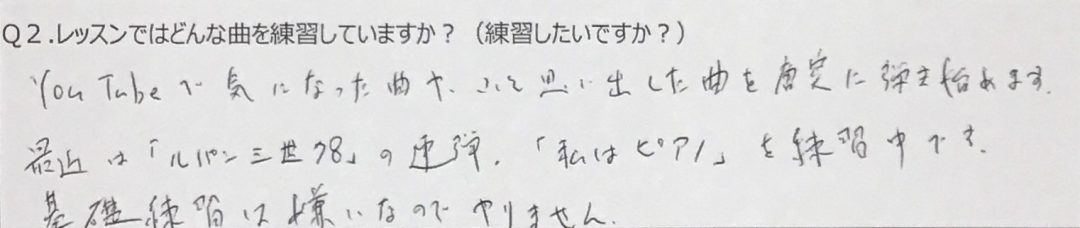 Q2.レッスンではどんな曲を練習していますか？（練習したいですか？）
YouTubeで気になった曲や、ふと思い出した曲を に弾き始めます。
最近は「ルパン三世78」の連弾、「私はピアノ」を練習中です。
基礎練習は嫌いなのでやりません。